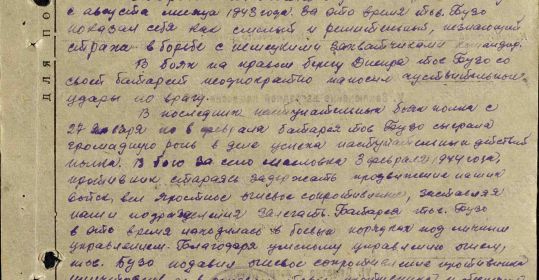 с августа месяца 1943 года. За это время тов. Бузо
показал себя как смелый и решительный, незнающий
страха в борьбе с немецкими захватчиками командир.
В боях на правом берегу Днепра тов Бузо со
своей батареей неоднократно наносил чуствительные
удары по врагу.
В последних наступательных боях полка с
27 января по 6 февраля батарея тов Бузо сыграла
громадную роль в деле успеха наступательных действий
полка. В бою за село Масловка 3 февраля 1944 года,
противник стараясь задержать продвижение наших
войск, вел яростное огневое сопротивление, заставляя
наши подразделения залегать. Батарея тов. Бузо
в это время находилась в боевых порядках под личным
управлением. Благодаря умелому управлению огнем,
тов. Бузо подавил огневое сопротивление противника
ДЛЯ ПО